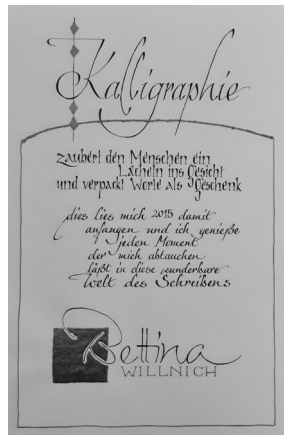 Kalligraphie
zaubert den Menschen ein
Lächeln ins Gesicht
und verpackt Worte als Geschenk
dies lies mich 2015 damit
anfangen und ich genieße
jeden Moment
der mich abtauchen
läßt in diese wunderbare
Welt des Schreibens
Bettina
WILLNICH